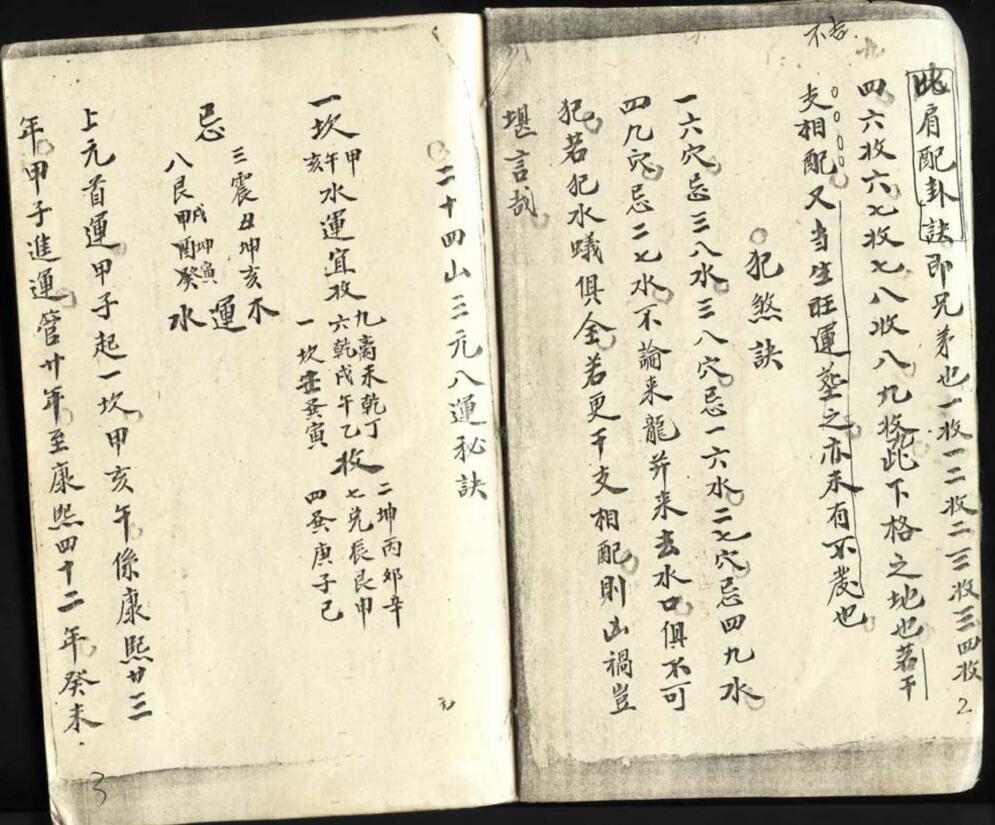 不吉
此肩配卦訣即兄弟也一收一二收二三收三四收
四六收六七收七八收八九收九此下格之地也若干
支相配又当生旺運塟之亦未有不發也
犯煞訣
一六穴忌三八水三八穴忌一六水二七穴忌四九水
四九穴忌二七水不論来龍并来去水口俱不可
犯若犯水蟻俱全若更干支相配則凶禍豈
堪言哉
2
二十四山三元八運秘訣
一坎甲午亥水運宜收
九离禾乾丁
六乾戌午乙
一坎壬巽寅
收
二坤丙卯辛
七兌辰艮申
四巽庚子巳
忌
三震丑坤亥木
八艮甲酉癸
戌坤寅
運水
上元首運甲子起一坎甲亥午係康熙廿三
年甲子進運管廿年至康熙四十二年癸未
3